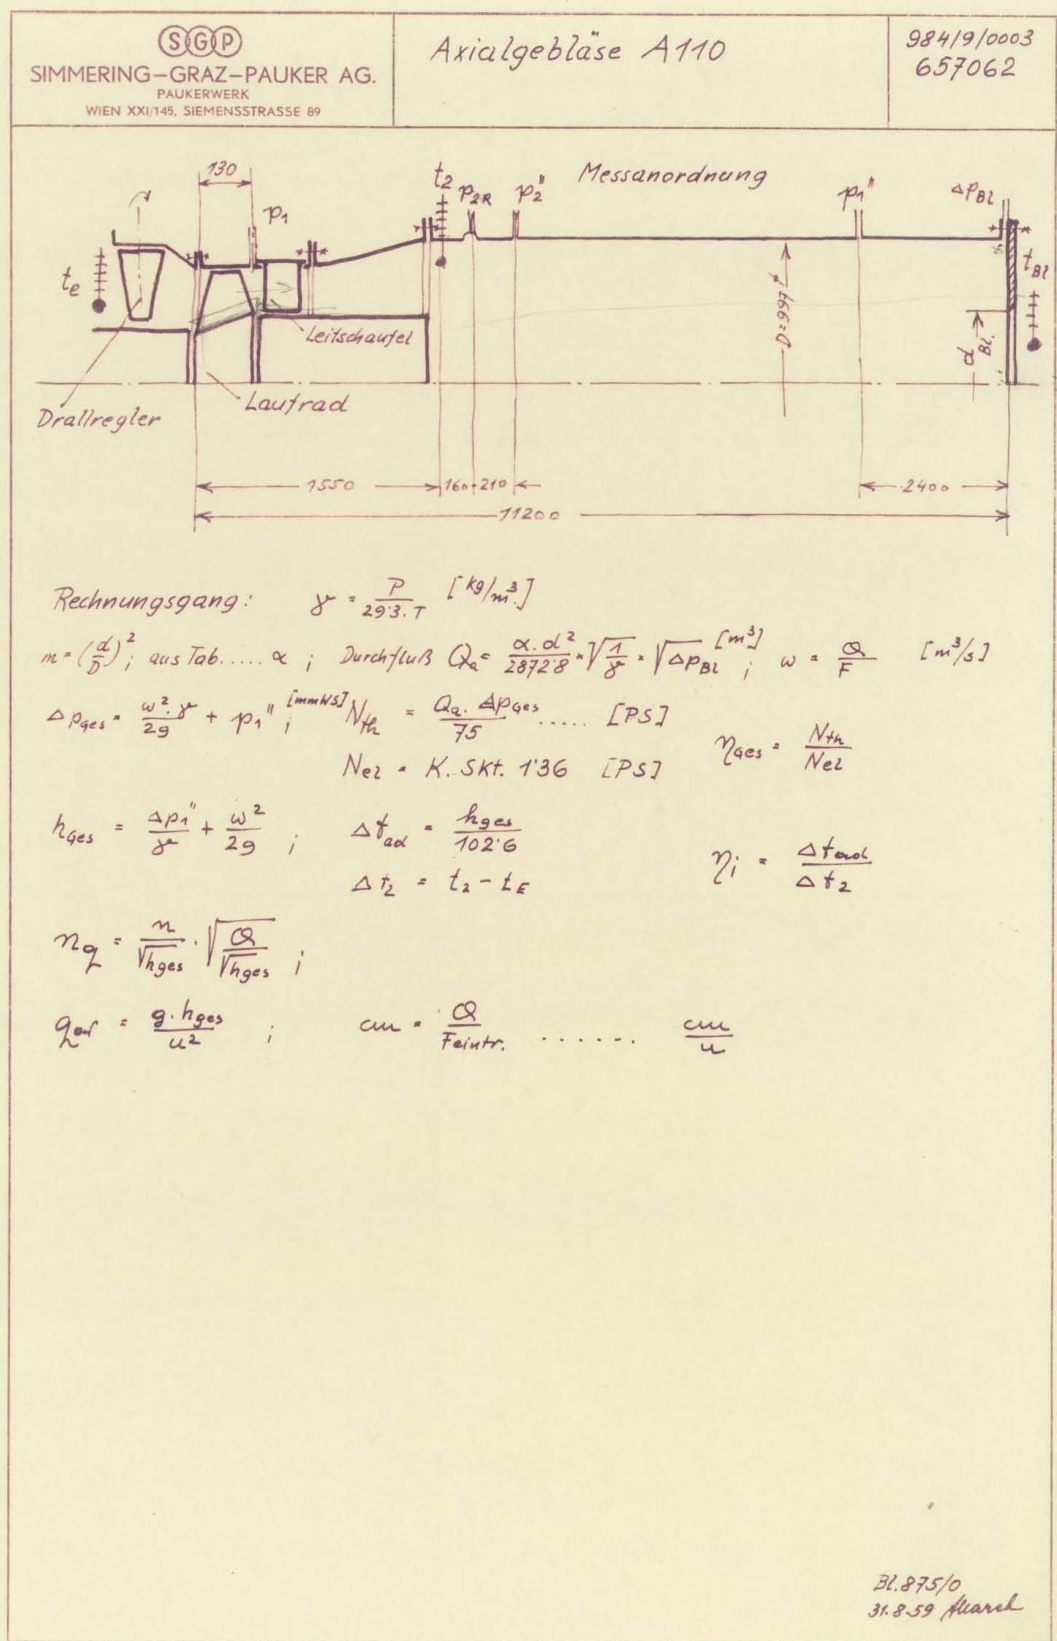 SGP
SIMMERING-GRAZ-PAUKER AG.
PAUKERWERK
WIEN XXI/145, SIEMENSSTRASSE 89
Axialgebläse A110
984/9/0003
657062
Messanordnung
130
p₁
t₂
p₂R
p₂"
p₁"
Δp_Bl
t_e
t_Bl
Leitschaufel
D=994⌀
d Bl.
Laufrad
Drallregler
1550
160
210
2400
11200
Rechnungsgang: γ = P/29'3.T [kg/m³]
m = (d/D)²; aus Tab..... α ; Durchfluß Qa = α.d²/2872'8 · √(1/γ) · √Δp_Bl [m³] ; w = Q/F [m³/s]
Δp_ges = w².γ/2g + p₁" ; [mmWS] N_th = Qa. Δp_ges/75 ..... [PS]
N_el = K. Skt. 1'36 [PS] η_ges = N_th/N_el
h_ges = Δp₁"/γ + w²/2g ; Δt_ad = h_ges/102'6
Δt₂ = t₂ - t_E η_i = Δt_ad/Δt₂
n_q = n/√h_ges · √(Q/√h_ges) ;
g.h_ges/u² ; cm = Q/Feintr. ...... cm/u
Bl.875/0
31.8.59